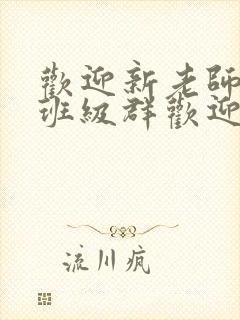 歡迎新老師
班級群歡迎
流川疯